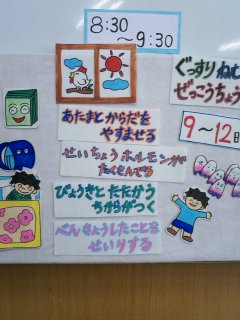 8:30
～9:30
ぐっすり ねむ
ぜっこうちょう
あたまと からだを
やすませる
9～12日
せいちょうホルモンが
たくさんでる
びょうきと たたかう
ちからがつく
べんきょうしたことを
せいりする